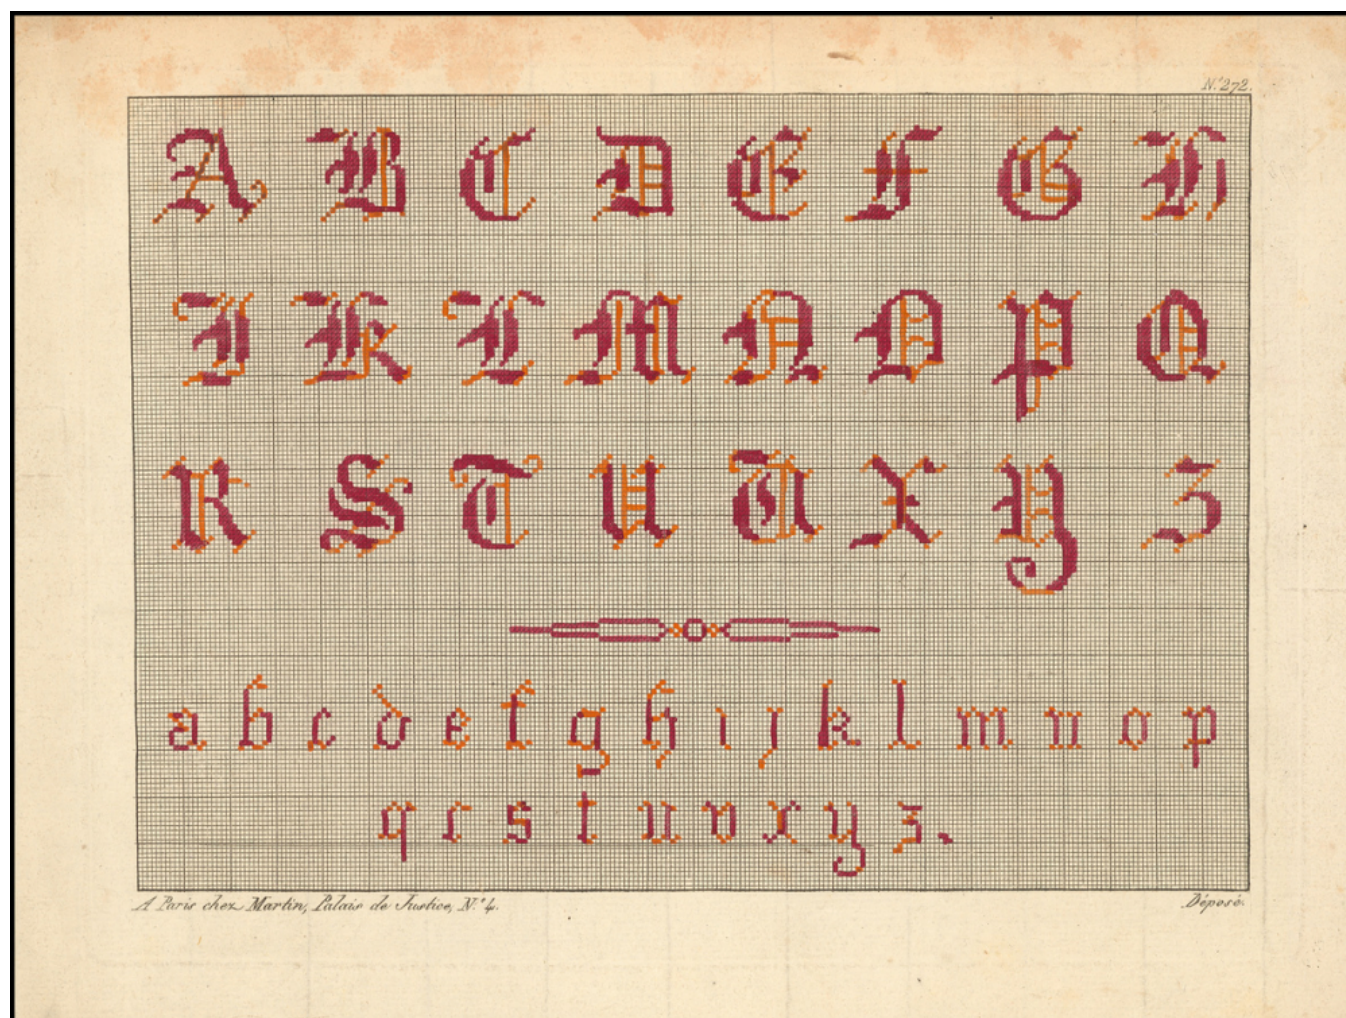 N.° 272.
A B C D E F G H
I K L M N O P Q
R S T U V X Y Z
a b c d e f g h i j k l m n o p
q r s t u v x y z.
A Paris chez Martin, Palais de Justice, N.° 4.
Déposé.